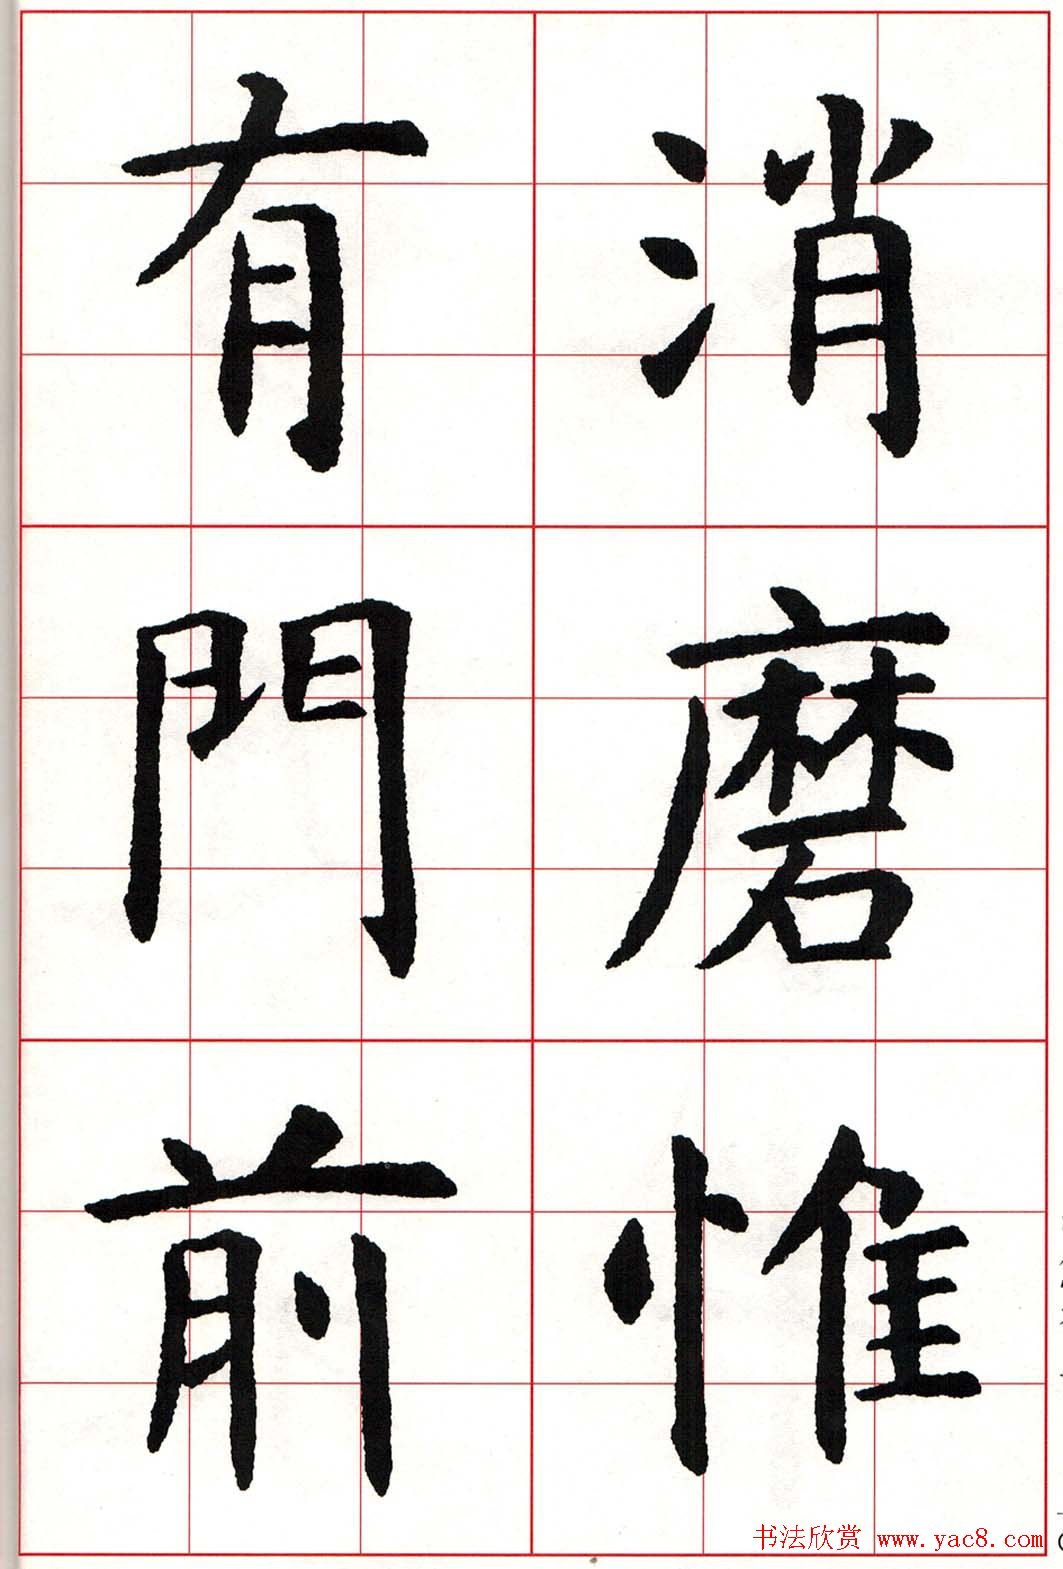 消磨惟
有門前
书法欣赏 www.yac8.com